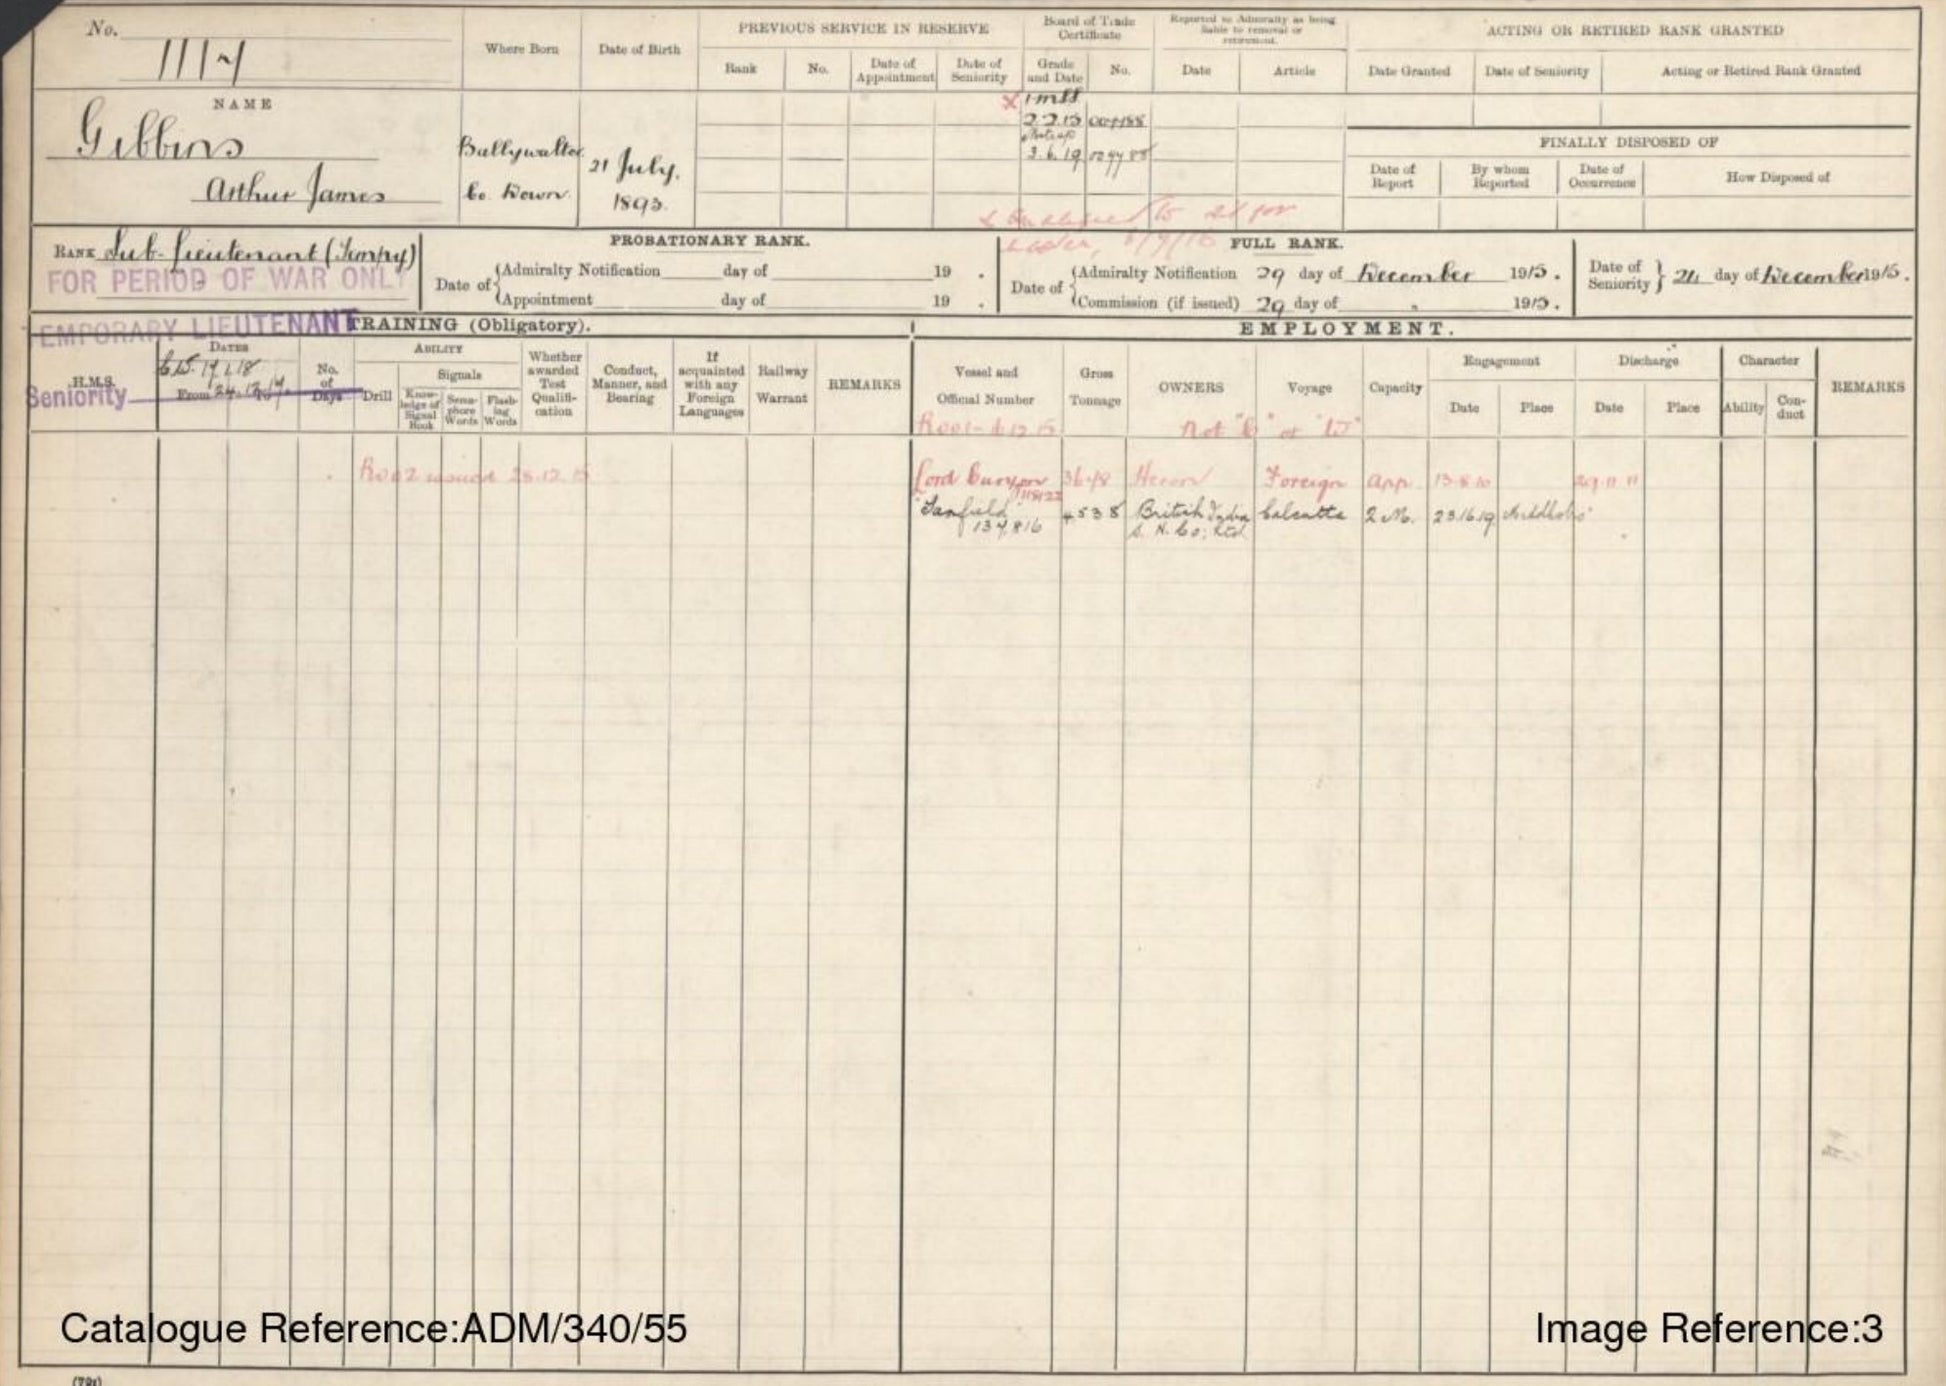 No.
NAME
Gibbins
Arthur James
Where Born
Ballywalter
Co. Down.
Date of Birth
21 July,
1893.
PREVIOUS SERVICE IN RESERVE
Rank
No.
Date of Appointment
Date of Seniority
Board of Trade Certificate
Grade and Date
No.
2.2.15 004188
3.6.19
Reported to Admiralty as being liable to removal or retirement.
Date
Article
ACTING OR RETIRED RANK GRANTED
Date Granted
Date of Seniority
Acting or Retired Rank Granted
FINALLY DISPOSED OF
Date of Report
By whom Reported
Date of Occurrence
How Disposed of
RANK Sub-Lieutenant (Tempy)
FOR PERIOD OF WAR ONLY
PROBATIONARY RANK.
Date of
Admiralty Notification day of 19 .
Appointment day of 19 .
FULL RANK.
Date of
Admiralty Notification 29 day of December 1915.
Commission (if issued) 29 day of " 1915.
Date of Seniority } 24 day of December 1915.
TEMPORARY LIEUTENANT
Seniority
TRAINING (Obligatory).
H.M.S.
DATES
From
No. of Days
ABILITY
Drill
Signals
Knowledge of Signal Book
Semaphore Words
Flashing Words
Whether awarded Test Qualification
Conduct, Manner, and Bearing
If acquainted with any Foreign Languages
Railway Warrant
REMARKS
issued 28.12.15
EMPLOYMENT.
Vessel and Official Number
Gross Tonnage
OWNERS
Voyage
Capacity
Engagement
Date
Place
Discharge
Date
Place
Character
Ability
Conduct
REMARKS
Not "C" or "W"
Lord Curzon 3648 Heron Foreign App. 13.8.10 29.11.11
"Fanfield" 4538 British India Calcutta 2 M. 23.6.19
134,816 S. N. Co; Ltd
Catalogue Reference:ADM/340/55
Image Reference:3